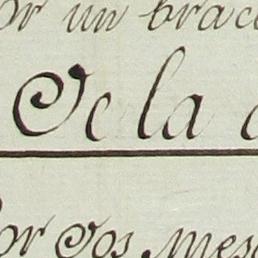 or un brac
De la
or dos mes